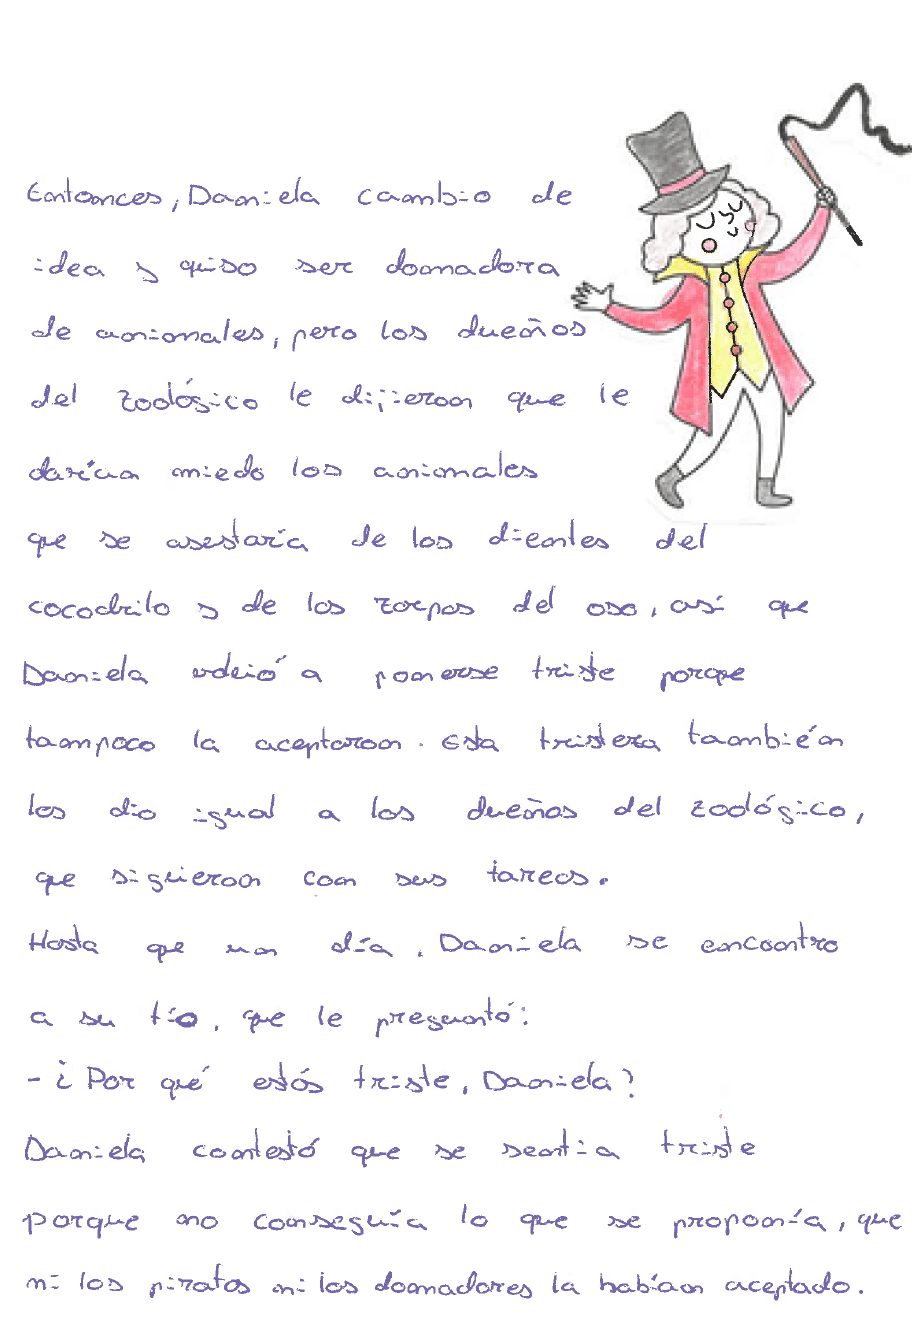 Entonces, Daniela cambio de
idea y quiso ser domadora
de animales, pero los dueños
del zoológico le dijieron que le
darían miedo los animales
que se asustaría de los dientes del
cocodrilo y de las zarpas del oso, así que
Daniela volvió a ponerse triste porque
tampoco la aceptaron. Esta tristeza también
les dio igual a los dueños del zoológico,
que siguieron con sus tareas.
Hasta que un día, Daniela se encontro
a su tío, que le preguntó:
- ¿Por qué estás triste, Daniela?
Daniela contestó que se sentia triste
porque no conseguía lo que se proponía, que
ni los piratas ni los domadores la habían aceptado.